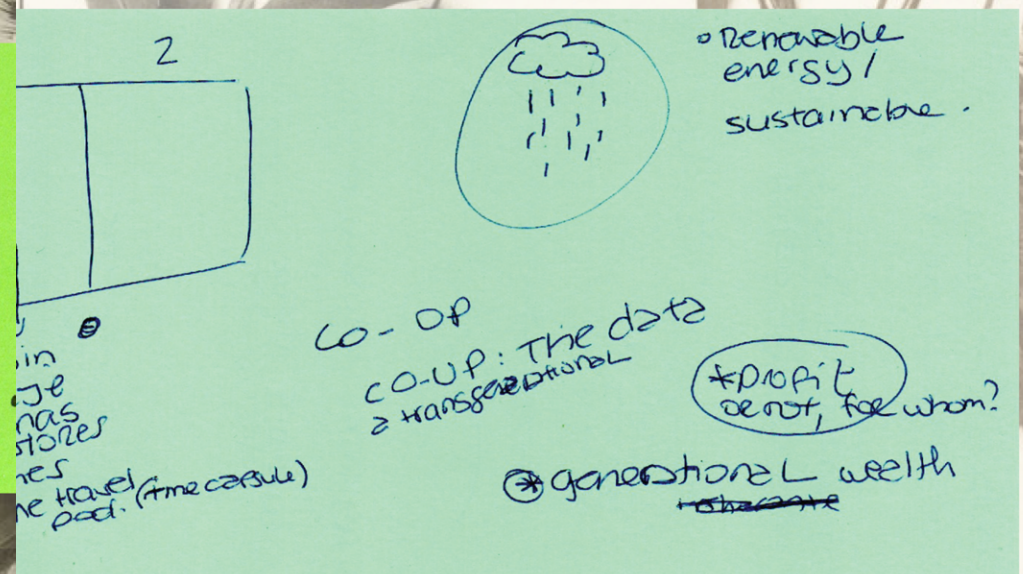 2
• Renewable
energy /
sustainable.
in
nas
stores
travel (time capsule)
pod.
CO-OP
CO-UP: The data
a transgenerational
*profit
or not, for whom?
* generational wealth